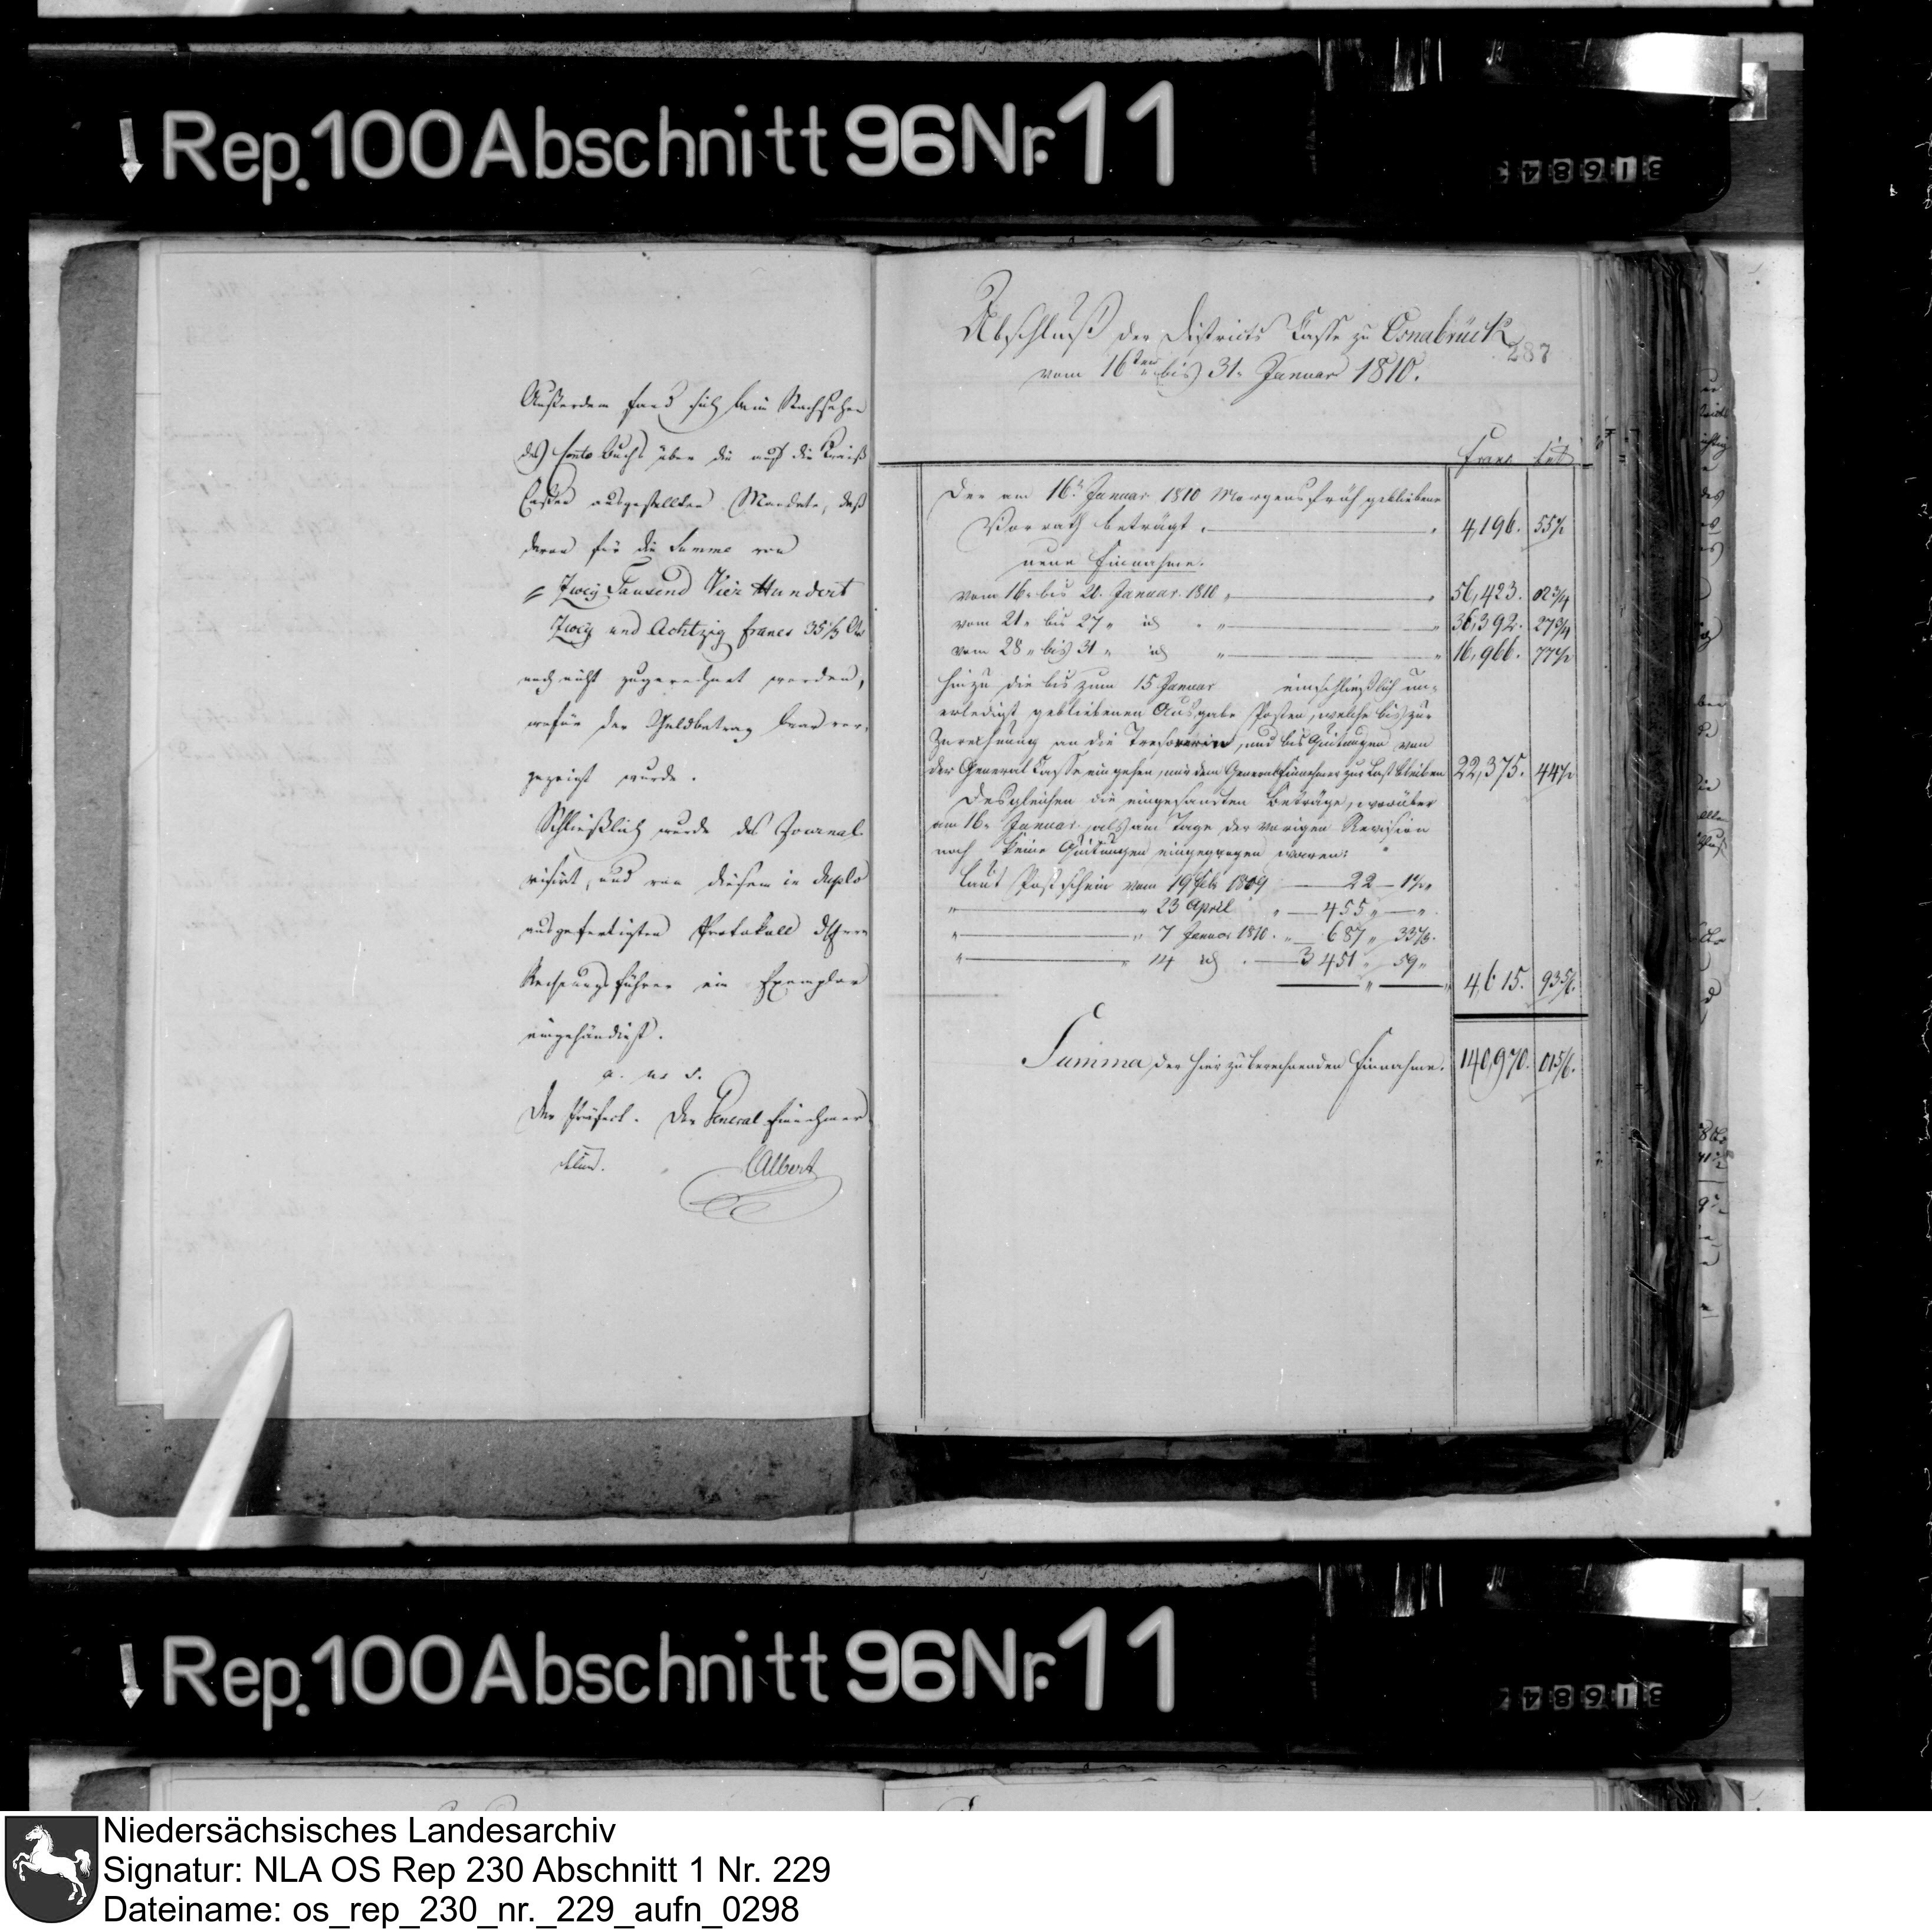 Rep. 100 Abschnitt 96 Nr. 11
Außerdem fand sich beim Nachsehen
des Conto Buchs über die auf die Kreis
Cassen ausgestellten Mandate, daß
deren für die Summe von
Zwey Tausend Vier Hundert
Zwey und Achtzig francs 35 1/3 Cts
noch nicht zugerechnet worden,
wofür der Geldbetrag baar vor-
gezeigt wurde.
Schließlich wurde das Journal
visirt, und von diesem in duplo
ausgefertigten Protokoll dem
Rechnungsführer ein Exemplar
eingehändigt.
a. u. s.
Der Präfect. Der General Einnehmer
Albert
Abschluß der Districts Casse zu Osnabrück
287
vom 16ten bis 31. Januar 1810.
Franc Cts
Der am 16. Januar 1810 Morgens früh gebliebene
Vorrath beträgt 4,196. 55 1/2
neue Einnahme.
vom 16. bis 20. Januar 1810 56,423. 02 3/4
vom 21. bis 27 " id " 36,392. 27 3/4
vom 28 " bis 31 " id " 16,966. 77 1/2
hinzu die bis zum 15 Januar einschließlich un-
erledigt gebliebenen Ausgabe Posten, welche bis zur
Zurechnung an die , und bis Quitungen von
der General Casse eingehen, nur dem General Einnehmer zur Last bleiben 22,375. 44 1/2
Desgleichen die eingesandten Beträge, worüber
am 16. Januar, als am Tage der vorigen Revision
noch keine Quitungen eingegangen waren:
laut Postschein vom 19 Feb 1809 22 – 1 1/2 "
" 23 April " 455 " — "
" 7 Januar 1810. " 687 " 33 1/3.
" 14 id 3451 " 59 "
4,615. 93 5/6.
Summa der hier zu berechnenden Einnahme. 140,970. 01 5/6.
Rep. 100 Abschnitt 96 Nr. 11
Niedersächsisches Landesarchiv
Signatur: NLA OS Rep 230 Abschnitt 1 Nr. 229
Dateiname: os_rep_230_nr._229_aufn_0298